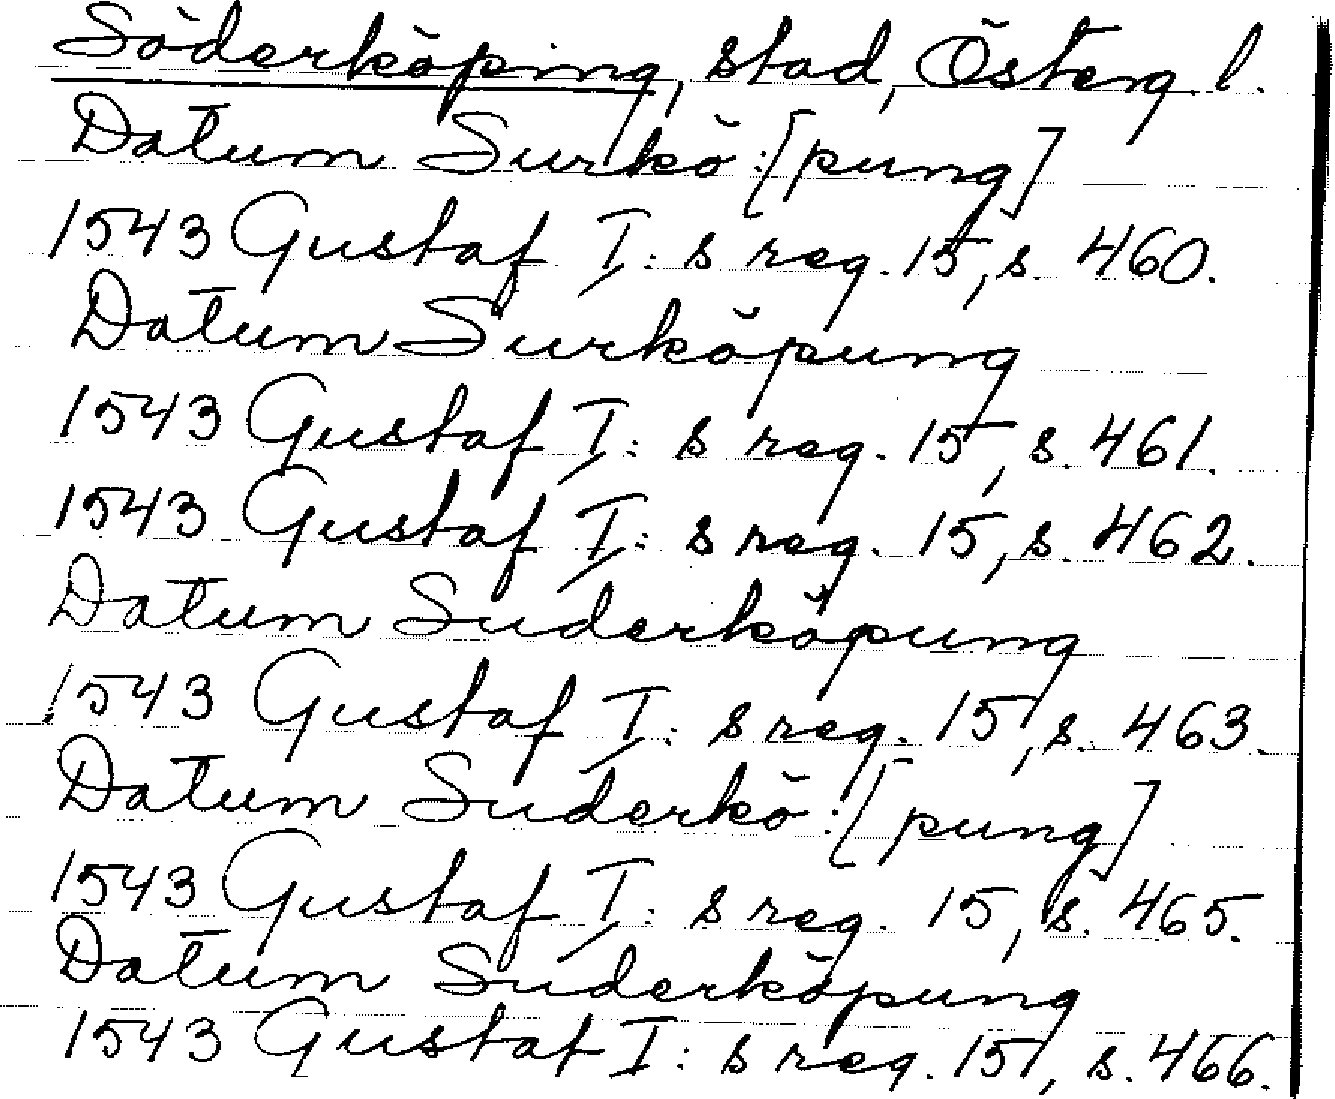 Söderköping, stad, Österg. l.
Datum Surkö:[pung]
1543 Gustaf I: s reg. 15, s. 460.
Datum Surköpung
1543 Gustaf I: s reg. 15, s. 461.
1543 Gustaf I: s reg. 15, s. 462.
Datum Suderköpung
1543 Gustaf I: s reg. 15, s. 463.
Datum Suderkö:[pung]
1543 Gustaf I: s reg. 15, s. 465.
Datum Suderköpung
1543 Gustaf I: s reg. 15, s. 466.